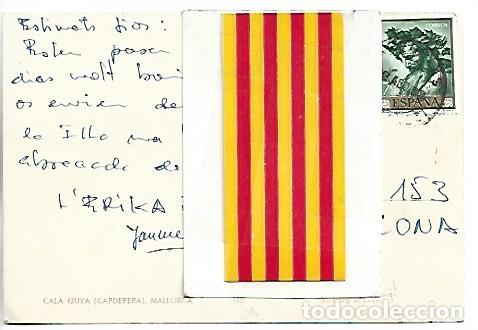 Estimats tios:
Estem passa
dias molt boni
os envien de
la Illa una
abraçada de
L'ERIKA i
Jaume
CORREOS
ESPAÑA
153
ONA
CALA GUYA (CAPDEPERA). MALLORCA
todocoleccion